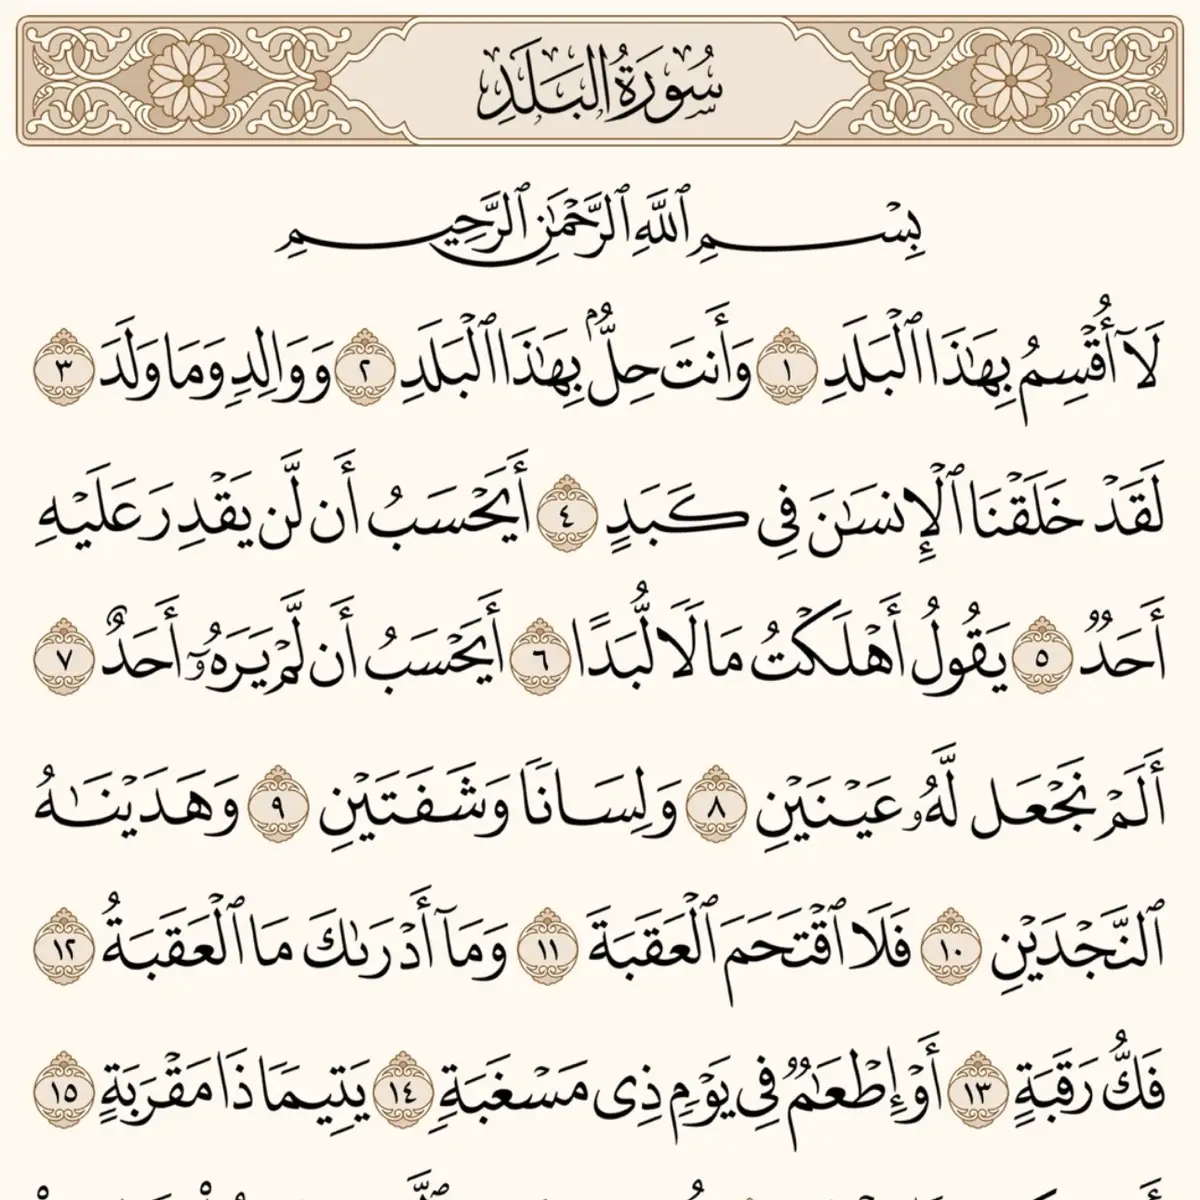 سُورَةُ الْبَلَدِ
بِسْمِ ٱللَّهِ ٱلرَّحْمَٰنِ ٱلرَّحِيمِ
لَآ أُقْسِمُ بِهَٰذَا ٱلْبَلَدِ ١ وَأَنتَ حِلٌّۢ بِهَٰذَا ٱلْبَلَدِ ٢ وَوَالِدٍ وَمَا وَلَدَ ٣
لَقَدْ خَلَقْنَا ٱلْإِنسَٰنَ فِى كَبَدٍ ٤ أَيَحْسَبُ أَن لَّن يَقْدِرَ عَلَيْهِ
أَحَدٌ ٥ يَقُولُ أَهْلَكْتُ مَالًا لُّبَدًا ٦ أَيَحْسَبُ أَن لَّمْ يَرَهُۥٓ أَحَدٌ ٧
أَلَمْ نَجْعَل لَّهُۥ عَيْنَيْنِ ٨ وَلِسَانًا وَشَفَتَيْنِ ٩ وَهَدَيْنَٰهُ
ٱلنَّجْدَيْنِ ١٠ فَلَا ٱقْتَحَمَ ٱلْعَقَبَةَ ١١ وَمَآ أَدْرَىٰكَ مَا ٱلْعَقَبَةُ ١٢
فَكُّ رَقَبَةٍ ١٣ أَوْ إِطْعَٰمٌ فِى يَوْمٍ ذِى مَسْغَبَةٍ ١٤ يَتِيمًا ذَا مَقْرَبَةٍ ١٥